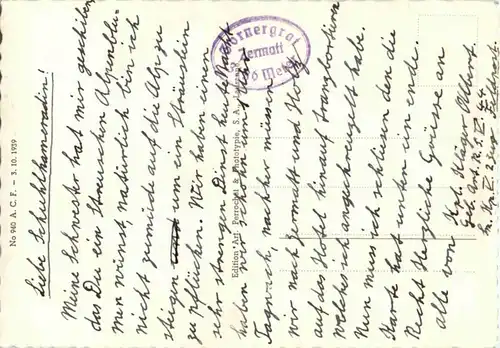 Liebe Schuhlkameradin!
Meine Schwester hat mir geschiben
das Du ein Streuschen Alpenblu-
men winst natürlich bin ich
nicht zumüde auf die Alp zu
steigen um ein Sträuslein
zu pflücken. Wir haben einen
sehr strengen Dienst heute Nacht
haben wir schohn um 1 Uhr
Tagwach, nachher müssen
wir nach Zermatt und Holz
auf das Hotel hinauf transportieren
welches ich angekreuzelt habe.
Nun muss ich schliesen den die
Karte hat unten ein ende.
Recht Herzliche Grüsse an
alle von
Kpl. Kläger Albert.
Geb. Art. R. S.
No 940 A. C. F. – 3. 10. 1939
Edition „Art" Perrochet & Phototypie, S. A., Lausanne
Gornergrat
Zermatt